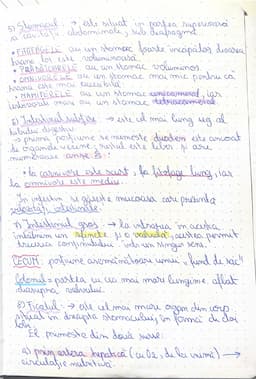 5) Stomacul → este situat în partea superioară
a cavității abdominale, sub diafragmă.
• ERBIVORELE au un stomac foarte încăpător, deoarece
hrana lor este voluminoasă.
• au un stomac voluminos.
• OMNIVORELE au un stomac mai mic pentru că
hrana este mai
• au un stomac unicameral, iar
au un stomac tetracameral.
6) Intestinul subțire → este cel mai lung seg. al
tubului digestiv
→ prima porțiune se numește duoden este ancorat
de organele vecine, restul este liber și are
numeroase anse.
• la carnivore este scurt, la erbivore lung, iar
la omnivore este mediu.
În intestin se găsește mucoasa care prezintă
vilozități intestinale.
7) Intestinul gros → la intrarea în acesta
întâlnim un sfincter și o valvulă, acestea permit
trecerea conținutului într-un singur sens.
CECUM: porțiune asemănătoare unui „fund de sac"
Colonul = partea cu cea mai mare lungime aflat
deasupra valvulei.
8) Ficatul → cel mai mare organ din corp
situat în dreapta stomacului, în formă de doi
lobi.
El primește din două surse:
a) prin artera hepatică (ca la, de la inimă) →
circulație nutritivă